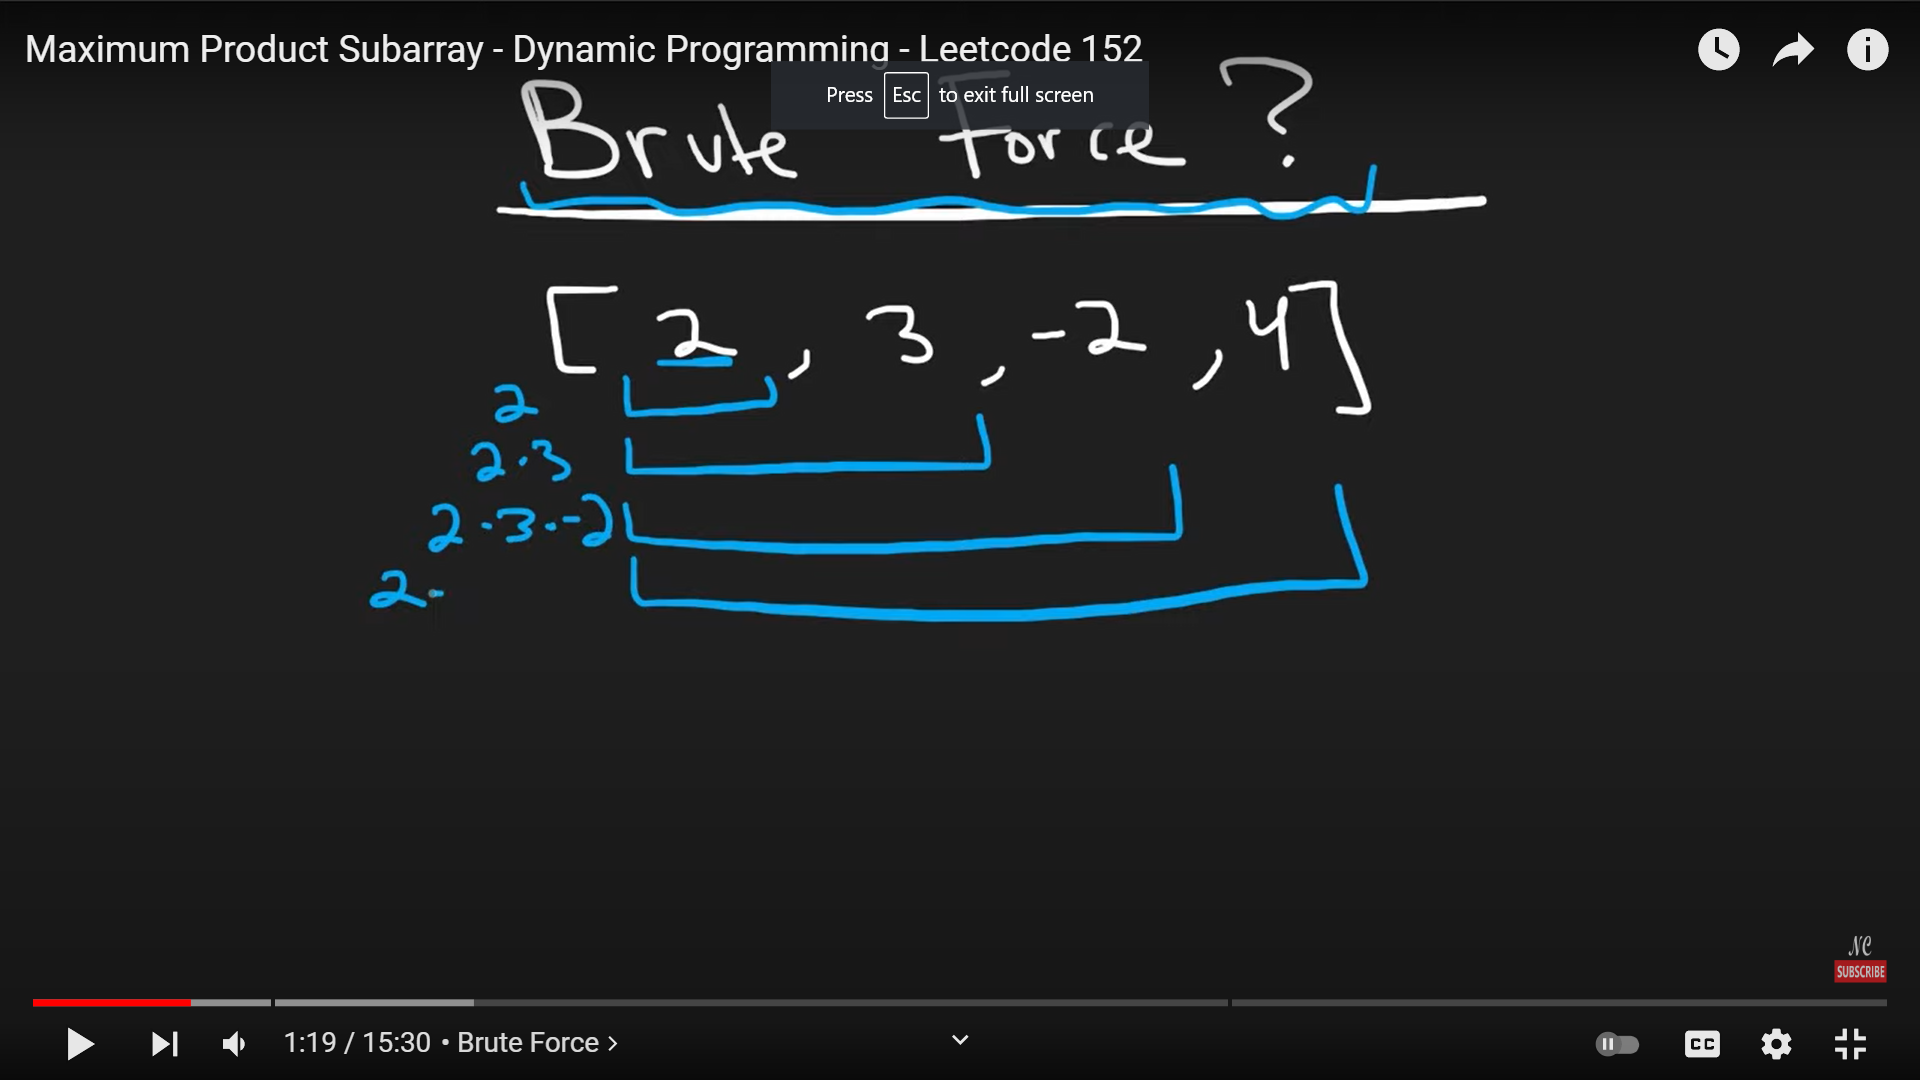 Maximum Product Subarray - Dynamic Programming - Leetcode 152
Press Esc to exit full screen
Brute Force ?
[ 2 , 3 , -2 , 4 ]
2
2 · 3
2 · 3 · -2
2 ·
NC
SUBSCRIBE
1:19 / 15:30 • Brute Force >
CC